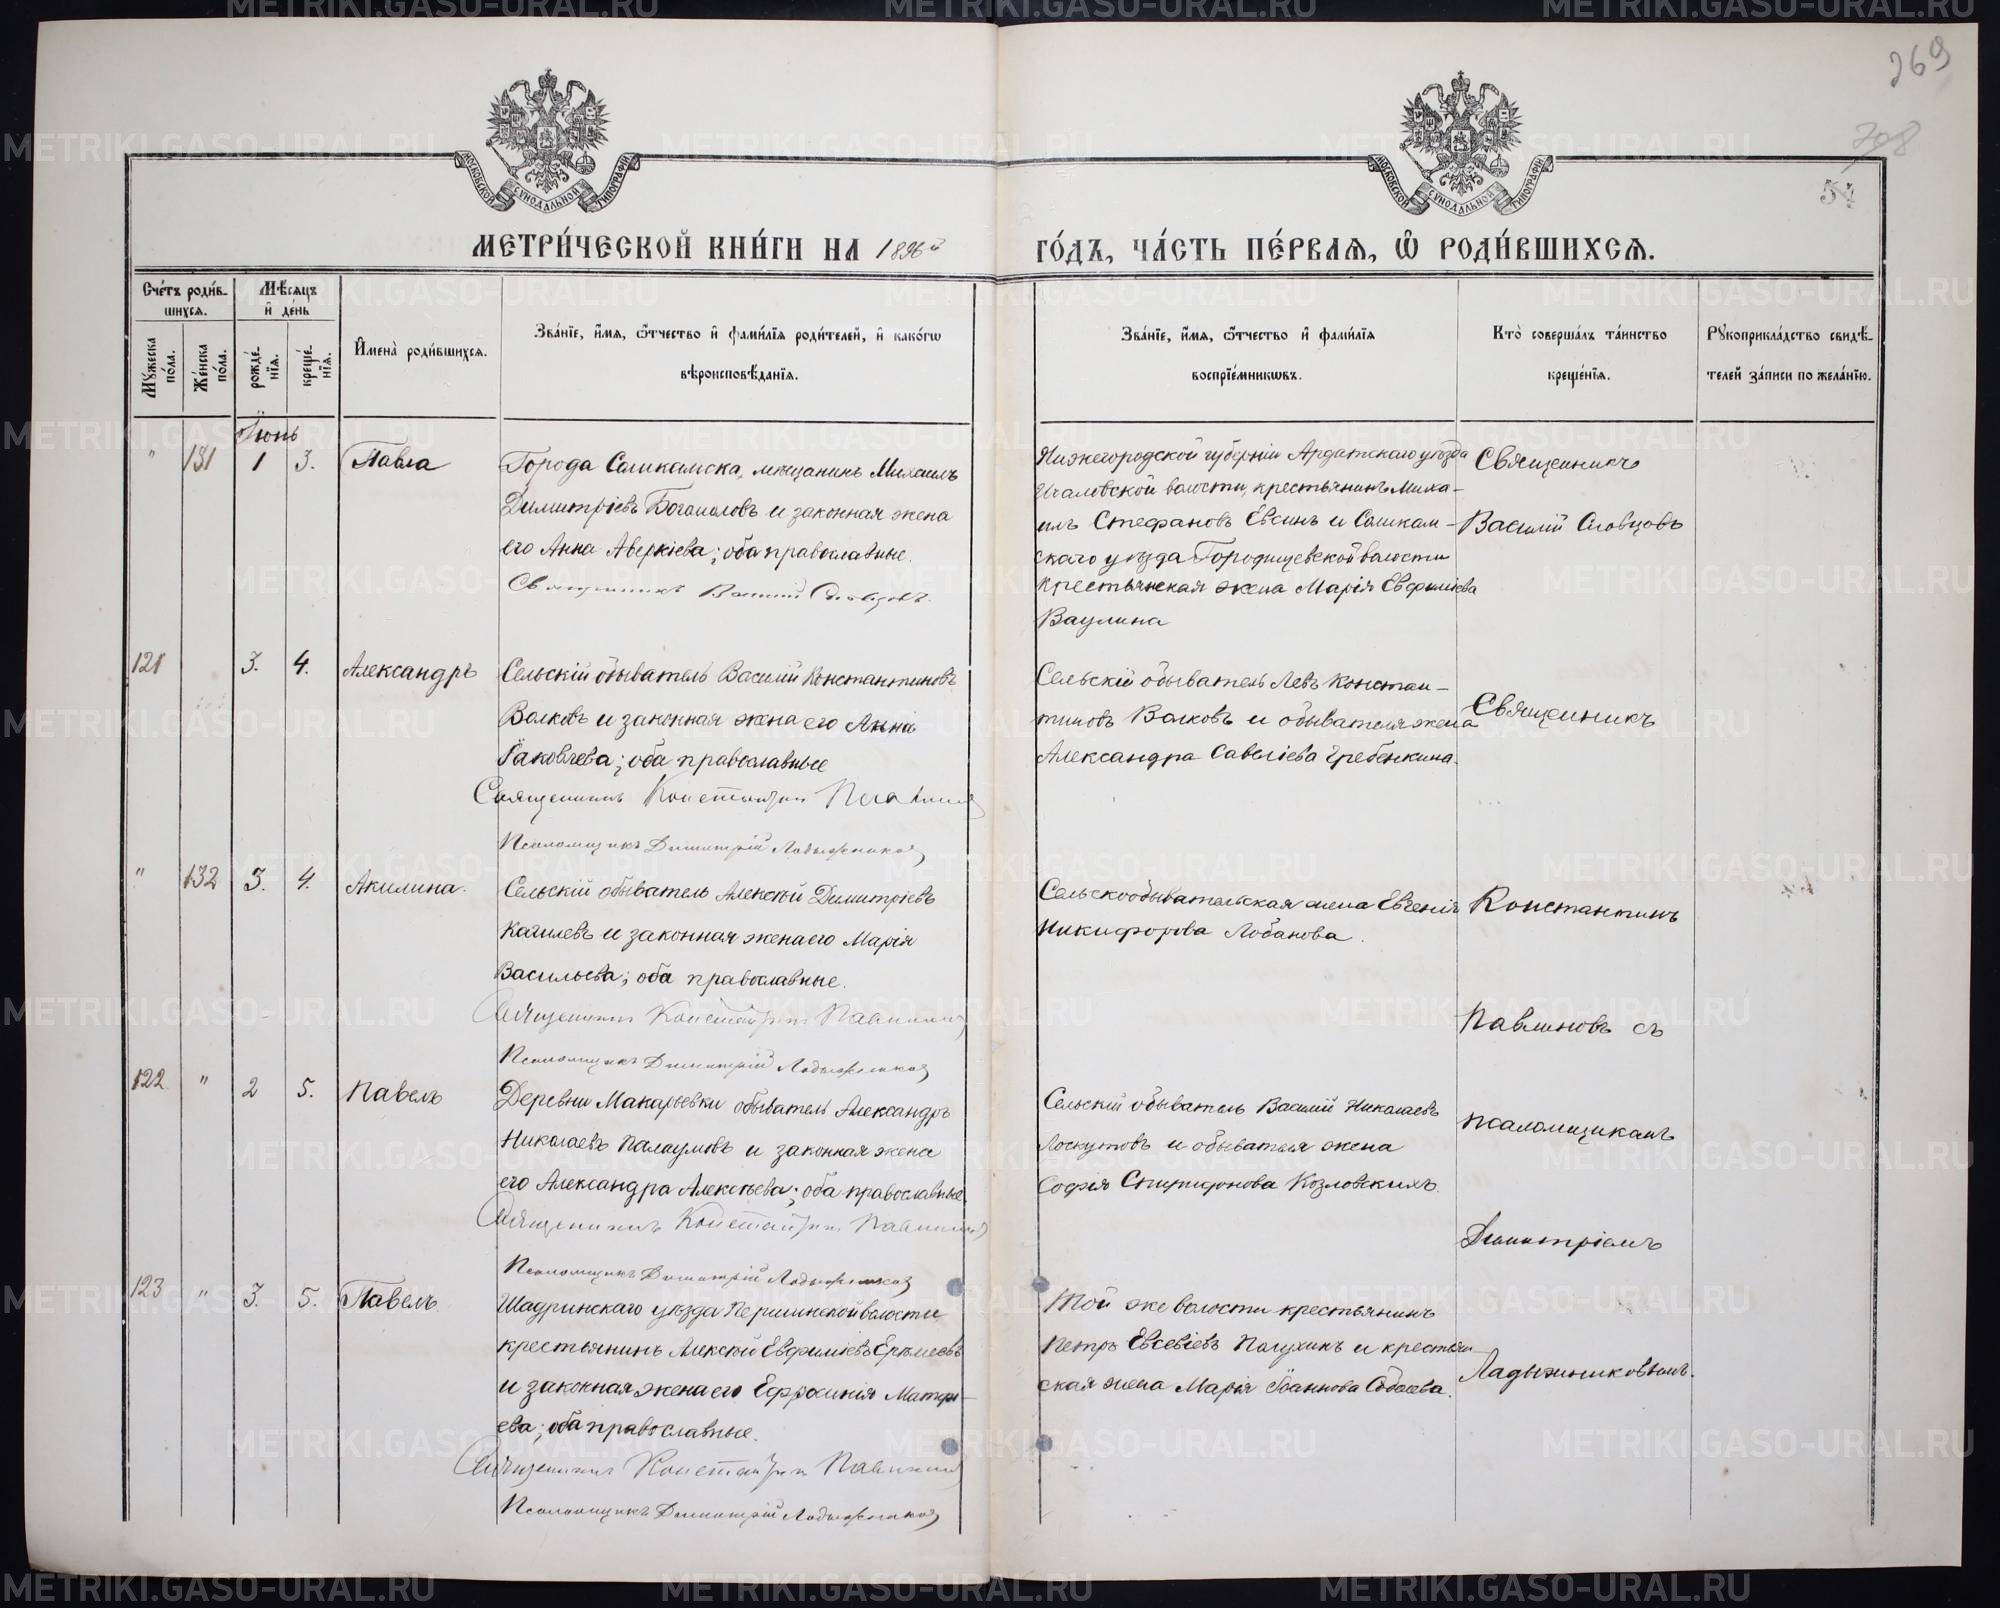 269
708
54
МОСКОВСКОЙ СУНОДАЛЬНОЙ ТИПОГРАФІИ
МОСКОВСКОЙ СУНОДАЛЬНОЙ ТИПОГРАФІИ
МЕТРИ́ЧЕСКОЙ КНИ́ГИ НА 1896й ГО́ДЪ, ЧА́СТЬ ПЕ́РВАЯ, Ѽ РОДИ́ВШИХСЯ.
Сче́тъ роди́в-
шихся.
Мѣ́сяцъ
и҆ де́нь
Мꙋ́жеска по́ла.
Же́нска по́ла.
рожде́нїя.
креще́нїя.
И҆мена̀ роди́вшихся.
Зва́нїе, и҆́мя, ѻ҆́тчество и҆ фами́лїя роди́телей, и҆ како́гѡ
вѣроисповѣ́данїя.
Зва́нїе, и҆́мя, ѻ҆́тчество и҆ фами́лїя
воспрїе́мникѡвъ.
Кто̀ соверша́лъ та́инство
креще́нїя.
Рꙋкоприкла́дство свидѣ́-
телей за́писи по жела́нїю.
Іюнь
" 131 1 3. Павла
Города Соликамска, мѣщанинъ Михаилъ
Димитріевъ Богомоловъ и законная жена
его Анна Аверкіева; оба православные.
Священникъ Василій Словцовъ.
Нижегородской губерніи Ардатскаго уѣзда
волости, крестьянинъ Миха-
илъ Стефановъ Евсинъ и Соликам-
скаго уѣзда Городищевской волости
крестьянская жена Марія Евфиміева
Ваулина
Священникъ
Василій Словцовъ
121 3. 4. Александръ
Сельскій обыватель Василій Константиновъ
Волковъ и законная жена его Анна
Іаковлева; оба православные
Священникъ Константинъ Павлиновъ
Псаломщикъ Димитрій Ладыжниковъ
Сельскій обыватель Левъ Констан-
тиновъ Волковъ и обывателя жена
Александра Савеліева Гребенкина.
Священникъ
" 132 3. 4. Акилина.
Сельскій обыватель Алексѣй Димитріевъ
Качилевъ и законная жена его Марія
Васильева; оба православные.
Священникъ Константинъ Павлиновъ
Псаломщикъ Димитрій Ладыжниковъ
Сельскообывательская жена Евгенія
Никифорова Лобанова.
Константинъ
Павлиновъ съ
122 " 2 5. Павелъ
Деревни Макарьевки обыватель Александръ
Николаевъ Палаумовъ и законная жена
его Александра Алексѣева; оба православные.
Священникъ Константинъ Павлиновъ
Псаломщикъ Димитрій Ладыжниковъ
Сельскій обыватель Василій Николаевъ
Лоскутовъ и обывателя жена
Софія Спиридонова Козловскихъ.
псаломщикомъ
Димитріемъ
123 " 3. 5. Павелъ.
Шадринскаго уѣзда Першинской волости
крестьянинъ Алексѣй Евфиміевъ Еремеевъ
и законная жена его Ефросинія Матѳи-
ева; оба православные.
Священникъ Константинъ Павлиновъ
Псаломщикъ Димитрій Ладыжниковъ
Той же волости крестьянинъ
Петръ Евсевіевъ Полухинъ и крестьян-
ская жена Марія Іоаннова Соболева.
Ладыжниковымъ.